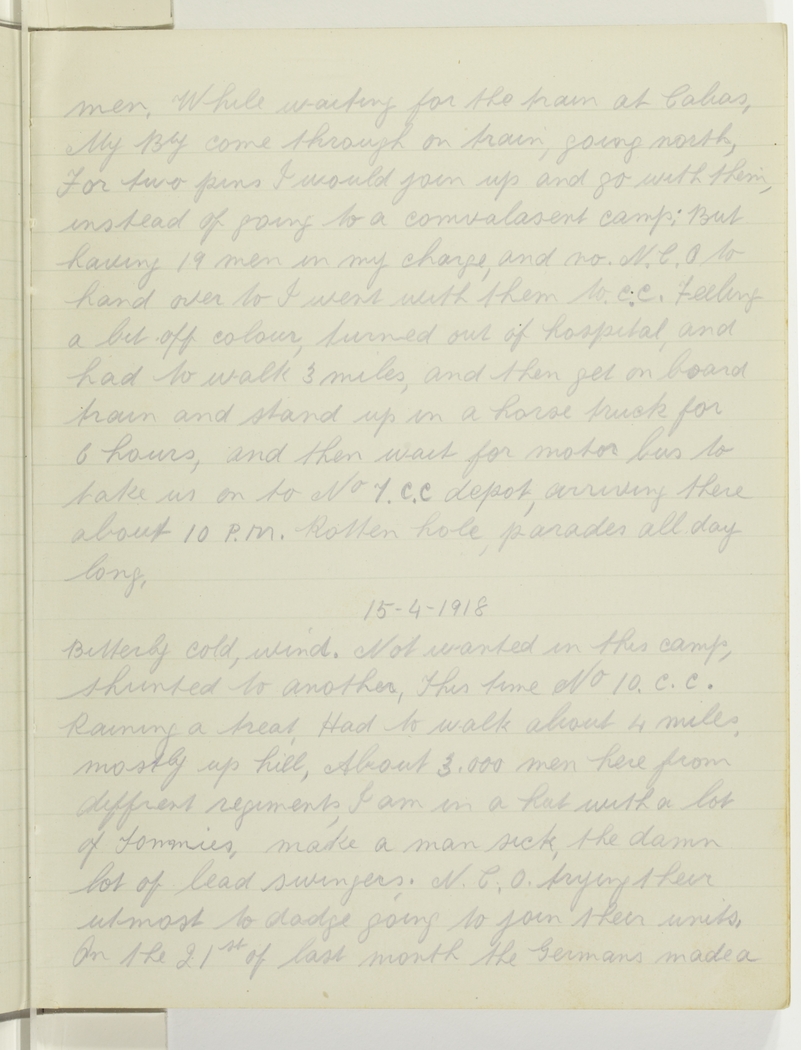 men. While waiting for the train at Calias,
My Bty come through on train, going north,
For two pins I would join up and go with them,
instead of going to a comvalasent camp; But
having 19 men in my charge, and no. N.C.O to
hand over to I went with them to. C.C. Feeling
a bit off colour, turned out of hospital, and
had to walk 3 miles, and then get on board
train and stand up in a horse truck for
6 hours, and then wait for motor bus to
take us on to No 7. C.C depot, arriving there
about 10 P.M. Rotten hole, parades all day
long,
15-4-1918
Bitterly cold, wind. Not wanted in this camp,
shunted to another, This time No 10. C.C.
Raining a treat, Had to walk about 4 miles,
mostly up hill, About 3.000 men here from
diffrent regiments, I am in a hut with a lot
of Tommies, make a man sick, the damn
lot of lead swingers. N.C.O. trying their
utmost to dodge going to join their units,
On the 21st of last month the Germans made a